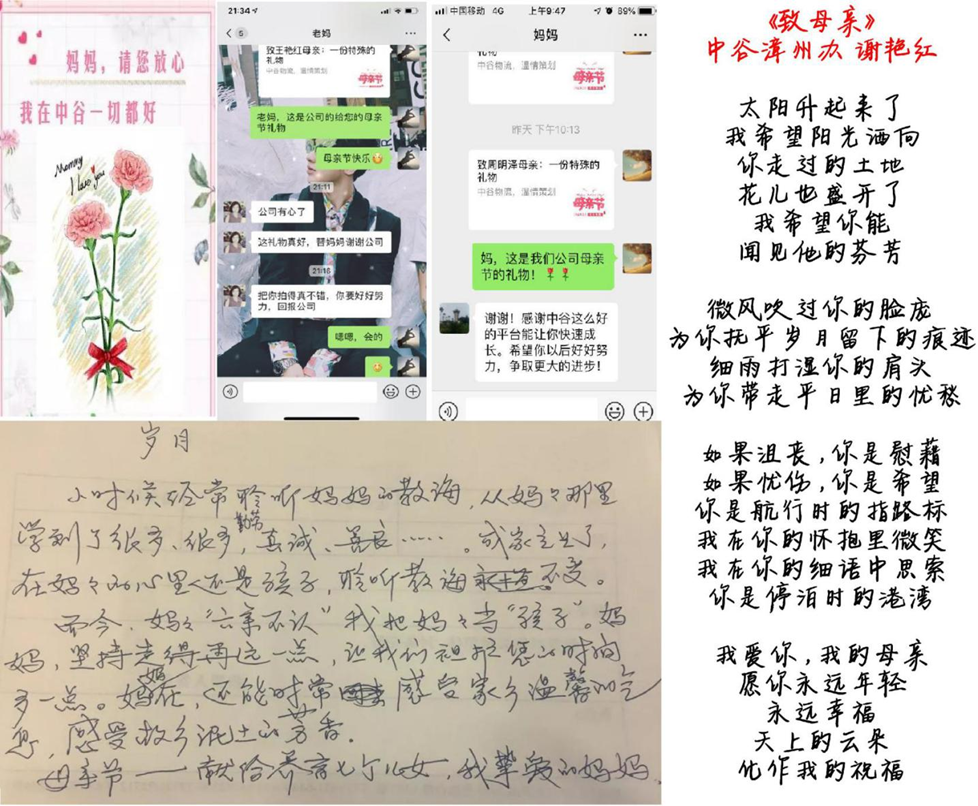 妈妈，请您放心
我在中谷一切都好
Mommy
I love you
21:34
5
老妈
致王艳红母亲：一份特殊的
礼物
中谷物流，温情策划
母亲节
老妈，这是公司的给您的母亲
节礼物
母亲节快乐
21:11
公司有心了
这礼物真好，替妈妈谢谢公司
21:16
把你拍得真不错，你要好好努
力，回报公司
嗯嗯，会的
中国移动 4G
上午9:47
89%
妈妈
礼物
中谷物流，温情策划
母亲节
昨天 下午10:13
致周明泽母亲：一份特殊的
礼物
中谷物流，温情策划
母亲节
妈，这是我们公司母亲
节的礼物！
谢谢！感谢中谷这么好
的平台能让你快速成
长。希望你以后好好努
力，争取更大的进步！
《致母亲》
中谷漳州办 谢艳红
太阳升起来了
我希望阳光洒向
你走过的土地
花儿也盛开了
我希望你能
闻见他的芬芳
微风吹过你的脸庞
为你抚平岁月留下的痕迹
细雨打湿你的肩头
为你带走平日里的忧愁
如果沮丧，你是慰藉
如果忧伤，你是希望
你是航行时的指路标
我在你的怀抱里微笑
我在你的细语中思索
你是停泊时的港湾
我爱你，我的母亲
愿你永远年轻
永远幸福
天上的云朵
化作我的祝福
岁月
小时候经常聆听妈妈的教诲，从妈々那里
学到了很多、很多，勤劳、真诚、善良……。成家立业了，
在妈々的心里还是孩子，聆听教诲不变。
而今，妈々“六亲不认”我把妈々当“孩子”。妈
妈，坚持走得再远一点，让我们祖护您的时间
多一点。妈在，还能时常感受家乡温馨的气
息，感受故乡泥土的芳香。
母亲节——献给养育七个儿女，我挚爱的妈妈。